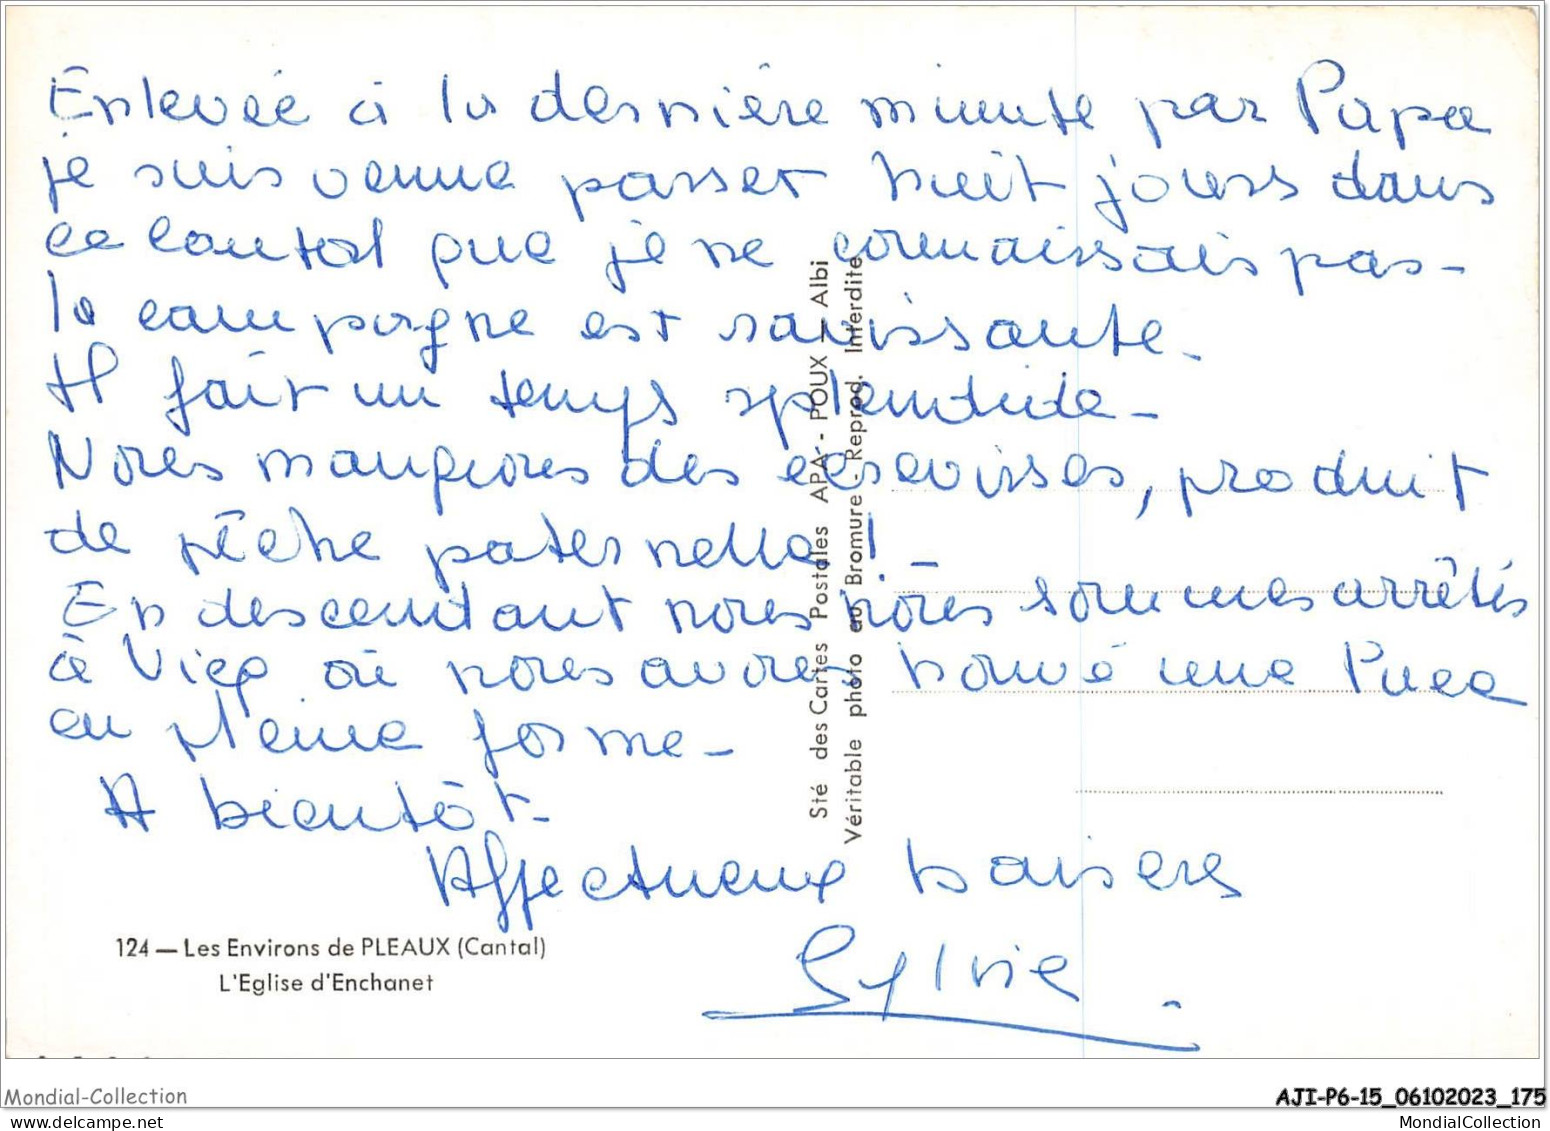 Enlevée à la dernière minute par Papa
je suis venue passer huit jours dans
ce Cantal que je ne connaissais pas -
la campagne est ravissante -
Il fait un temps splendide -
Nous mangeons des écrevisses, produit
de pêche paternelle ! -
En descendant nous nous sommes arrêtés
à Vicq où nous avons trouvé une
en pleine forme -
A bientôt -
Affectueux baisers
Sylvie
Sté des Cartes Postales APA - POUX — Albi
Véritable photo au Bromure - Reprod. Interdite
124 — Les Environs de PLEAUX (Cantal)
L'Eglise d'Enchanet
Mondial-Collection
AJI-P6-15_06102023_175
MondialCollection